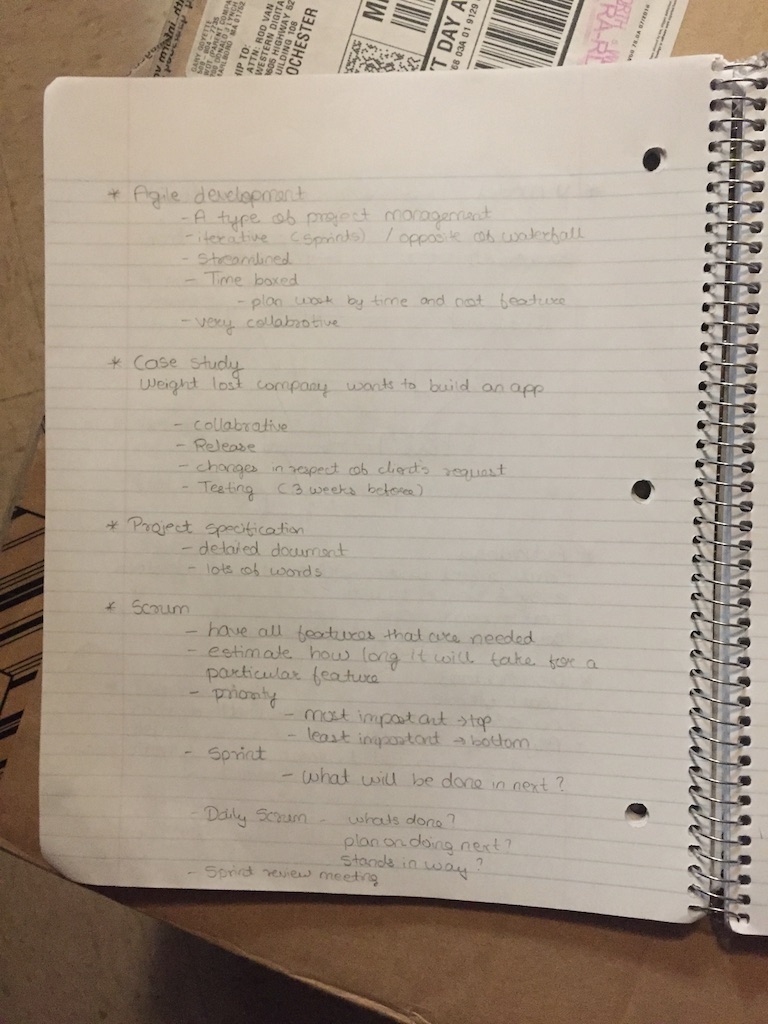 MI
T DAY A
IP TO:
ATTN: ROD VAN
WESTERN DIGITA
1605 HIGHWAY 52
UILDING 108
OCHESTER
* Agile development
- A type of project management
- iterative (sprints) / opposite of waterfall
- Streamlined
- Time boxed
- plan work by time and not feature
- very collabrative
* Case study
Weight lost company wants to build an app
- collabrative
- Release
- changes in respect of client's request
- Testing (3 weeks before)
* Project specification
- detailed document
- lots of words
* Scrum
- have all features that are needed
- estimate how long it will take for a
particular feature
- priority
- most important → top
- least important → bottom
- Sprint
- what will be done in next?
- Daily Scrum - whats done?
plan on doing next?
Stands in way?
- Sprint review meeting